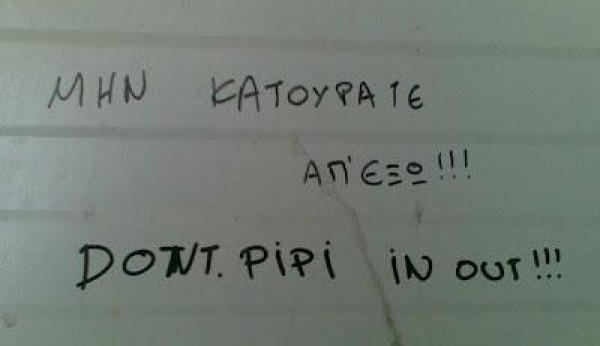 ΜΗΝ ΚΑΤΟΥΡΑΤΕ
ΑΠ'ΕΞΩ!!!
DONT. PIPI IN OUT!!!